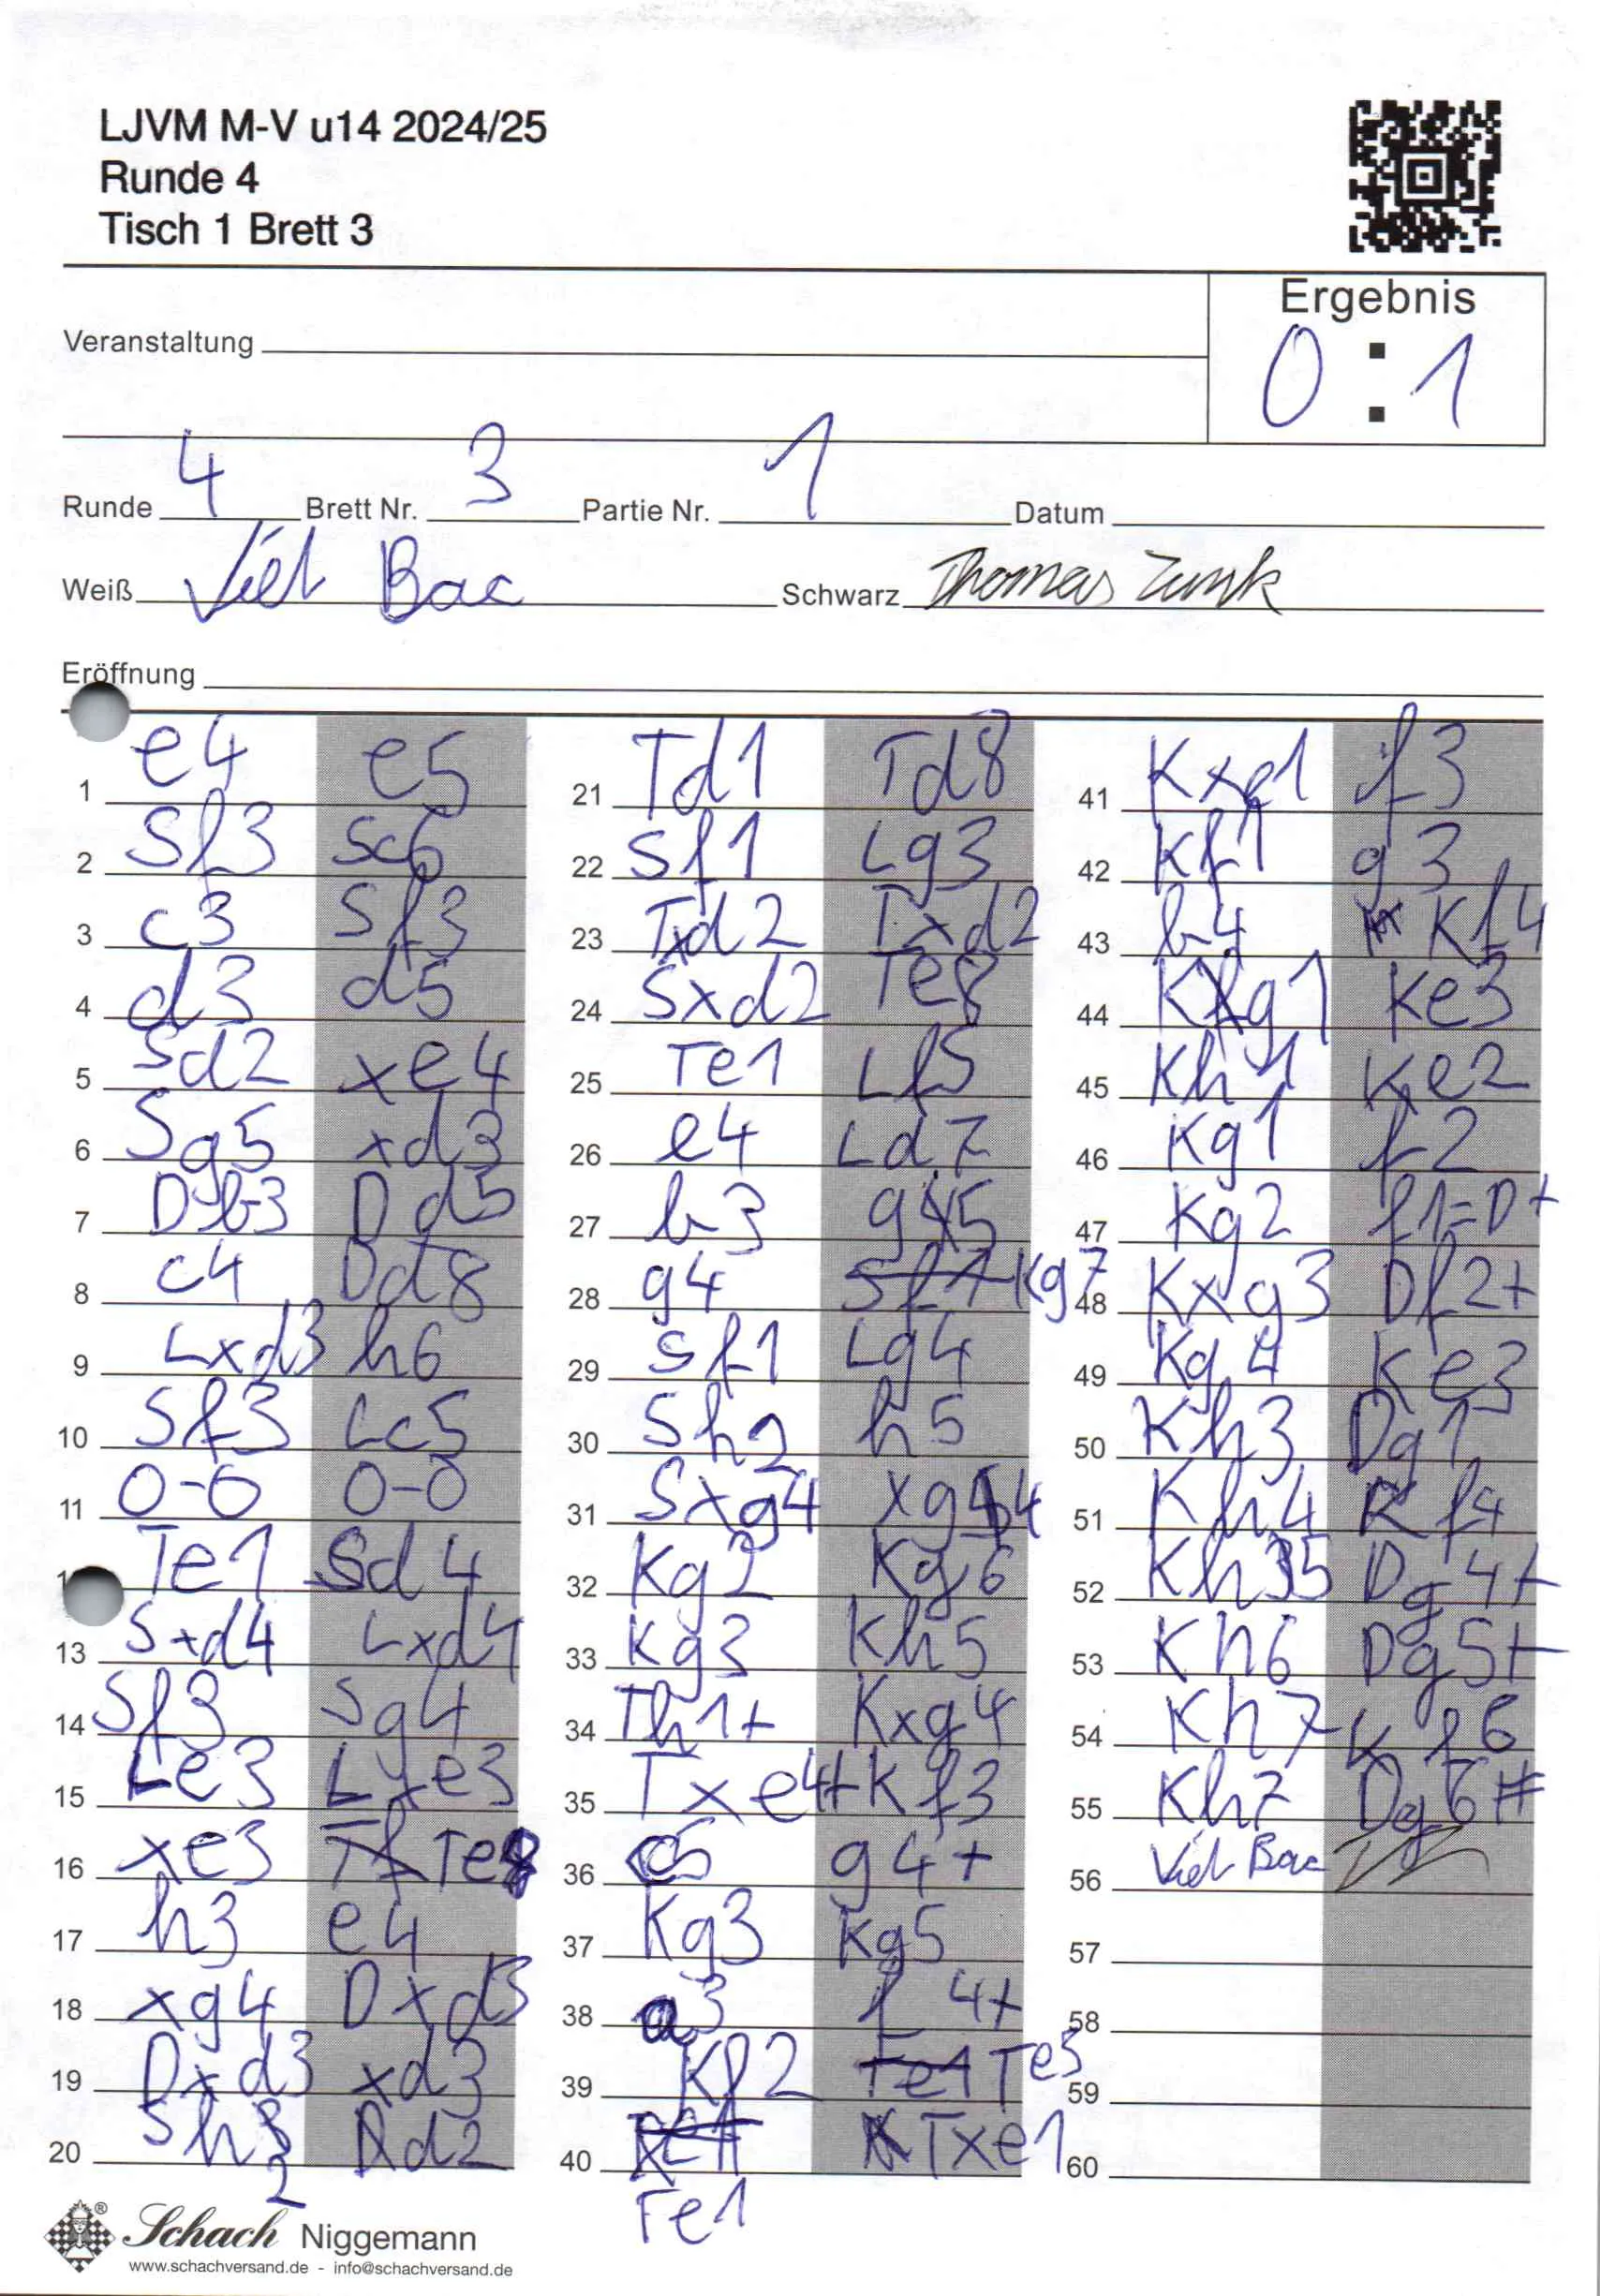 LJVM M-V u14 2024/25
Runde 4
Tisch 1 Brett 3
Ergebnis
0 : 1
Veranstaltung
Runde 4 Brett Nr. 3 Partie Nr. 1 Datum
Weiß Viet Bac Schwarz Thomas Zunk
Eröffnung
1 e4 e5
2 Sf3 Sc6
3 c3 Sf3
4 d3 d5
5 Sd2 xe4
6 Sg5 xd3
7 Db3 Dd5
8 c4 Dd8
9 Lxd3 h6
10 Sf3 Lc5
11 0-0 0-0
1 Te1 Sd4
13 Sxd4 Lxd4
14 Sf3 Sg4
15 Le3 Lxe3
16 xe3 Te8
17 h3 e4
18 xg4 Dxd3
19 Dxd3 xd3
20 Sh2 d2
21 Td1 Td8
22 Sf1 Lg3
23 Txd2 Txd2
24 Sxd2 Te8
25 Te1 Lf5
26 e4 Ld7
27 b3 g5
28 g4 Kg7
29 Sf1 Lg4
30 Sh2 h5
31 Sxg4 xg4
32 Kg2 Kg6
33 Kg3 Kh5
34 Th1+ Kxg4
35 Txe4+ Kf3
36 c5 g4+
37 Kg3 Kg5
38 a3 f4+
39 Kf2 Te5
40 Te1 Txe1
41 Kxe1 f3
42 Kf1 g3
43 b4 Kf4
44 Kg1 Ke3
45 Kh1 Ke2
46 Kg1 f2
47 Kg2 f1=D+
48 Kxg3 Df2+
49 Kg4 Ke3
50 Kh3 Dg1
51 Kh4 Kf4
52 Kh5 Dg4+
53 Kh6 Dg5+
54 Kh7 Kf6
55 Kh7 Dg6#
56 Viet Bac
57
58
59
60
Schach Niggemann
www.schachversand.de - info@schachversand.de